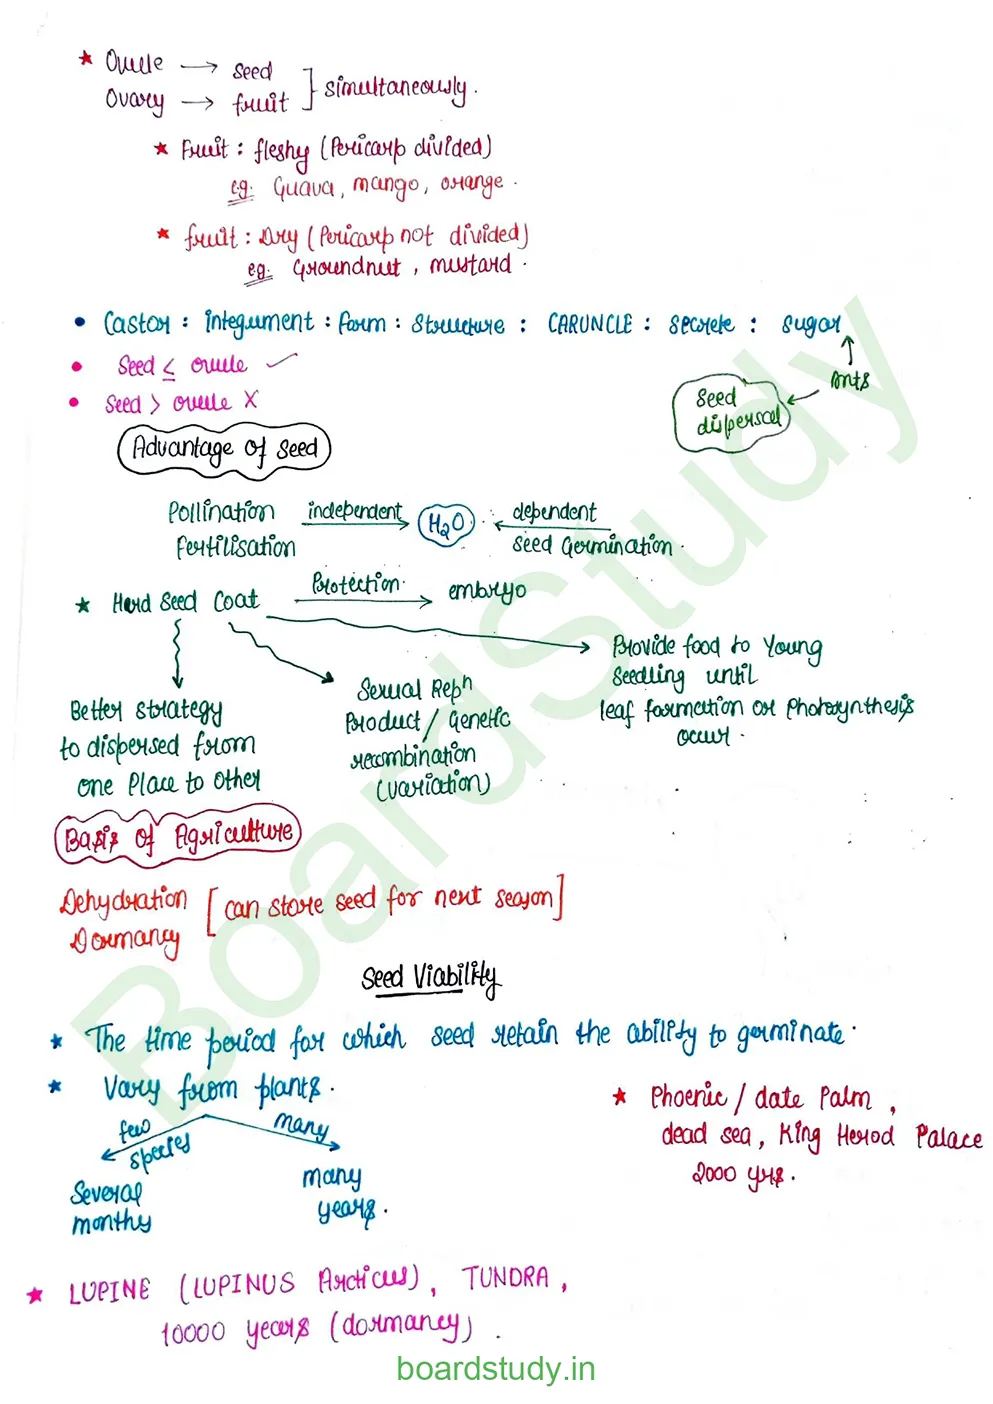 ★ Ovule → seed
Ovary → fruit } simultaneously.
★ Fruit : fleshy (Pericarp divided)
e.g. Guava, mango, orange.
★ fruit : Dry (Pericarp not divided)
eg. Groundnut, mustard.
• Castor : integument : form : structure : CARUNCLE : secrete : sugar
• Seed ≤ ovule ✓
Ants
• Seed > ovule X
Seed
dispersal
Advantage of Seed
Pollination independent → H2O ← dependent
Fertilisation Seed Germination.
★ Hard Seed Coat Protection. → embryo
Provide food to Young
Seedling until
leaf formation or Photosynthesis
occur.
Sexual Repⁿ
Product / Genetic
recombination
(variation)
Better strategy
to dispersed from
one Place to Other
Basis of Agriculture
Dehydration
Dormancy [can store seed for next season]
Seed Viability
★ The time period for which seed retain the ability to germinate.
★ Vary from plants.
few species
many
Several
monthy
many
years.
★ Phoenic / date Palm,
dead sea, King Herod Palace
2000 yrs.
★ LUPINE (LUPINUS Arcticus), TUNDRA,
10000 years (dormancy).
BoardStudy
boardstudy.in